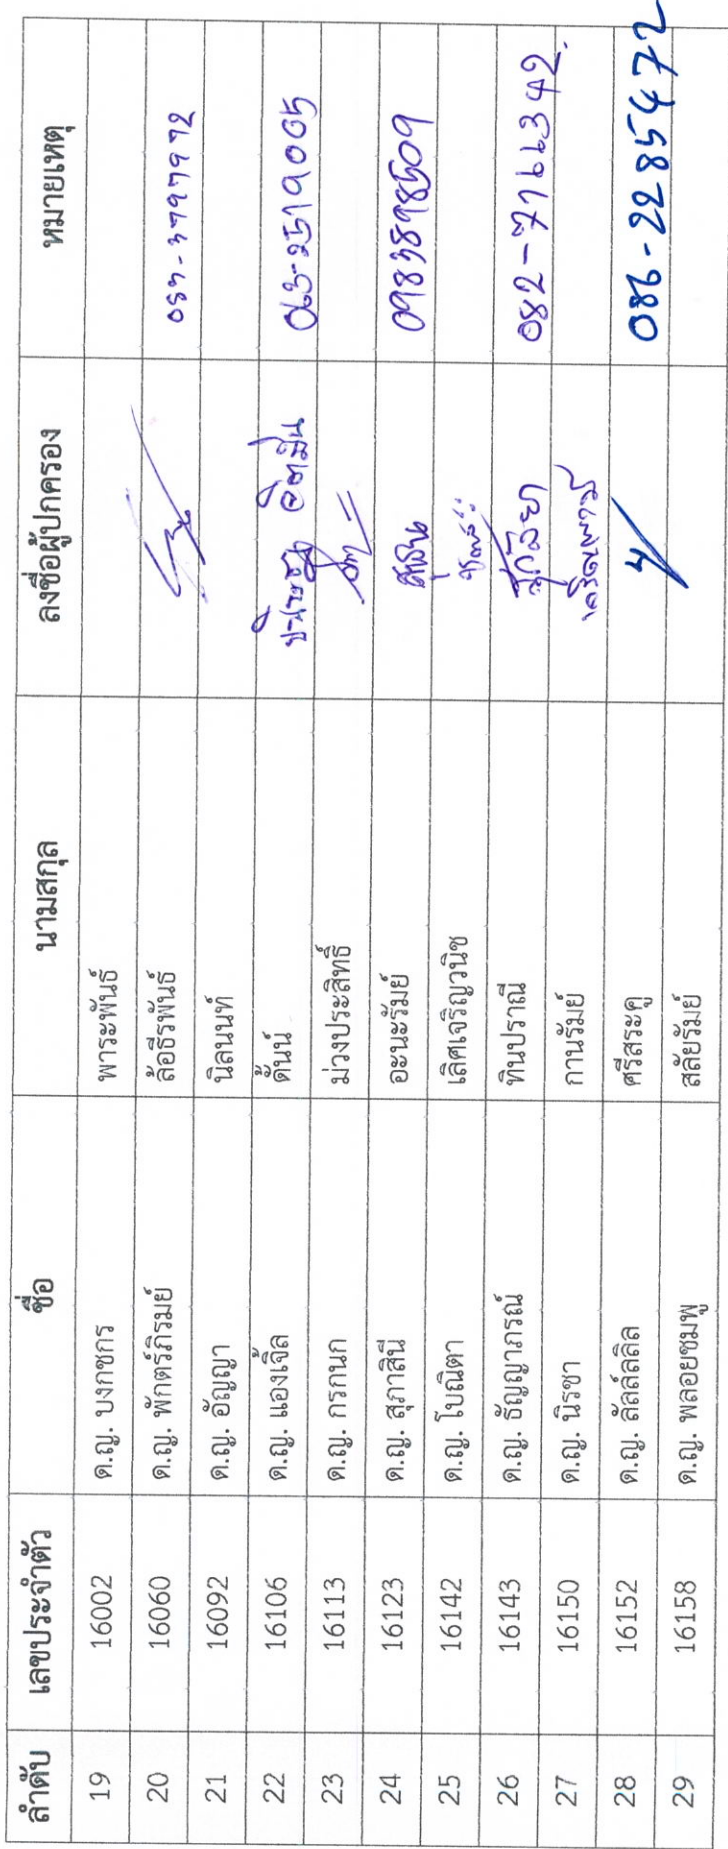 ลำดับ เลขประจำตัว ชื่อ นามสกุล ลงชื่อผู้ปกครอง หมายเหตุ
19 16002 ด.ญ. บงกชกร พาระพันธ์
20 16060 ด.ญ. พักตร์ภิรมย์ ล้อธีรพันธ์
21 16092 ด.ญ. อัญญา นิลนนท์
22 16106 ด.ญ. แองเจิ้ล ด้นน์ 063-2519005
23 16113 ด.ญ. กรกนก ม่วงประสิทธิ์
24 16123 ด.ญ. สุภาสินี อะนะรัมย์
25 16142 ด.ญ. โบณิตา เลิศเจริญวนิช
26 16143 ด.ญ. ธัญญาภรณ์ ทินปราณี สุกัลยา 082-7166342
27 16150 ด.ญ. นิรชา กานรัมย์
28 16152 ด.ญ. ลัลล์ลลิล ศรีสระคู 086-2285472
29 16158 ด.ญ. พลอยชมพู สลัยรัมย์